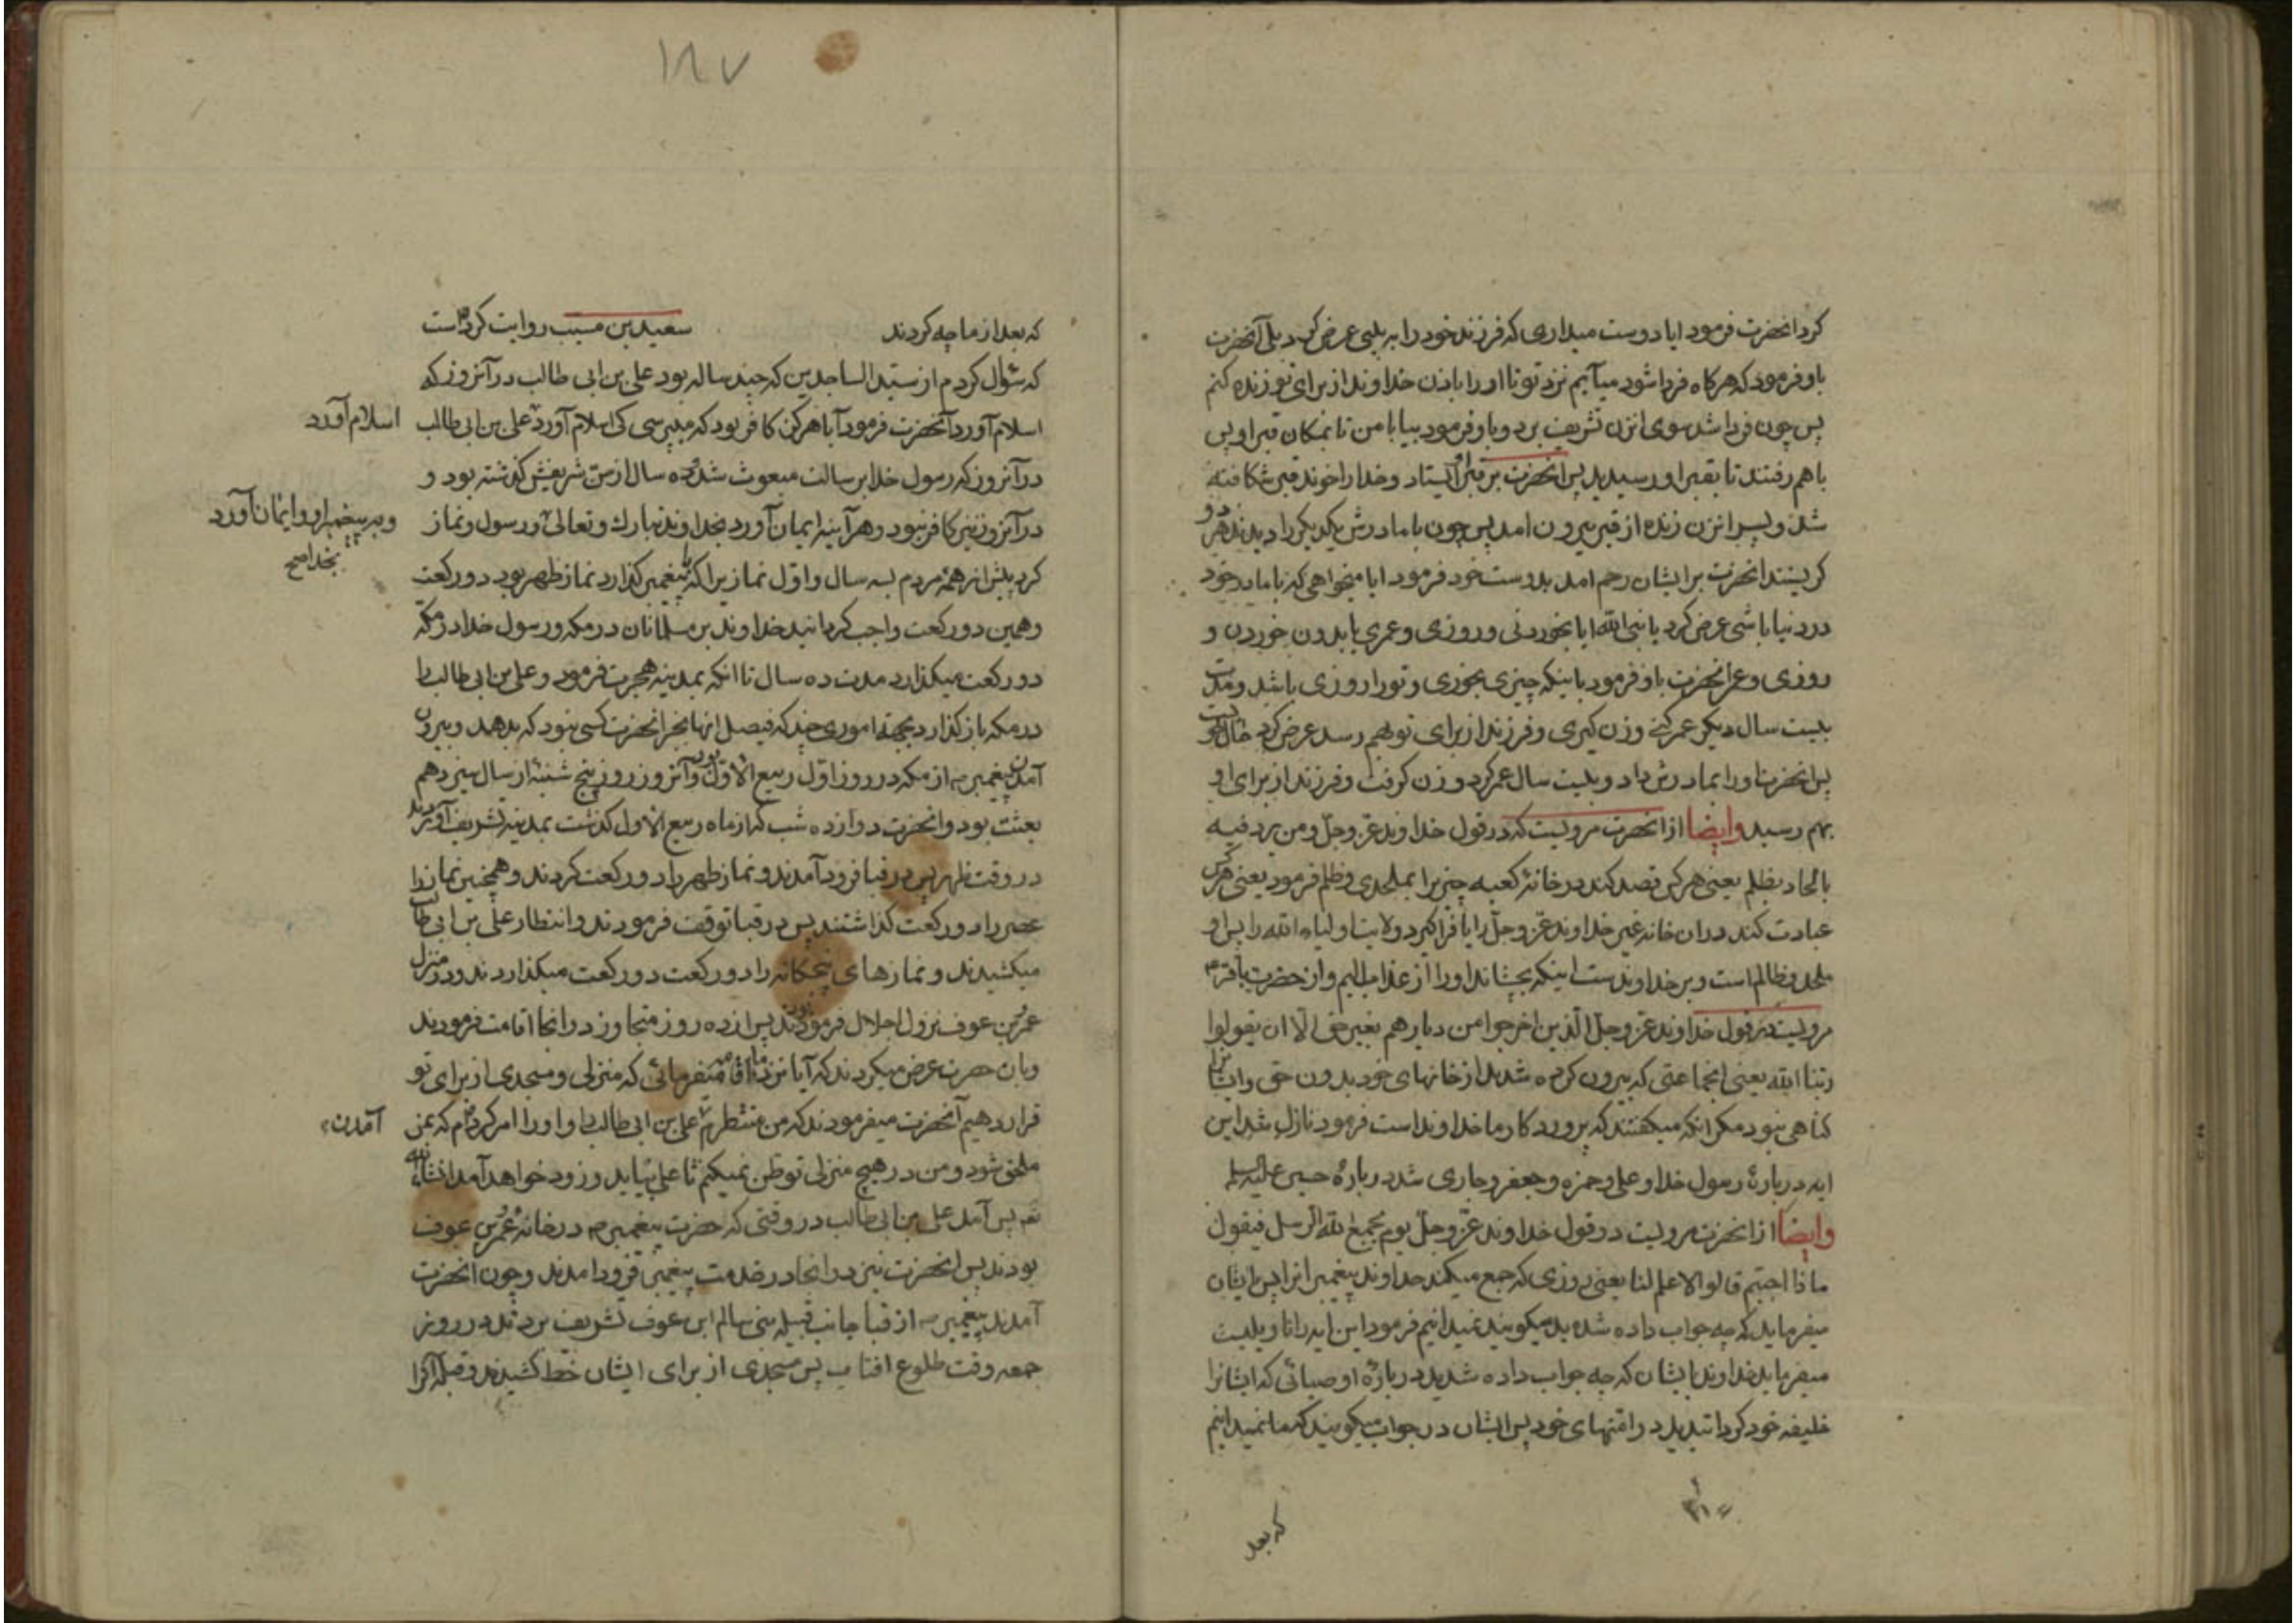 کرد انحضرت فرمود ایا دوست میداری که فرزند خود را به بینی عرض کرد بلی آنحضرت
باو فرمود که هرکاه فردا شود میآیم نزد تو تا او را باذن خداوند از برای تو زنده کنم
پس چون فردا شد سوی انزن تشریف برد و باو فرمود بیا با من تا بمکان قبر او پس
باهم رفتند تا بقبر او رسیدند پس انحضرت بر قبر او ایستاد و خدا را خوند قبر شکافته
شد و پسر انزن زنده از قبر بیرون امد پس چون با مادرش یکدیکر را دیدند هر دو
کریستند انحضرت بر ایشان رحم امد بدوست خود فرمود ایا میخواهی که با مادر خود
در دنیا باشی عرض کرد یا نبی الله ایا بخوردنی و روزی و عمری یا بدون خوردن و
روزی و عمر انحضرت باو فرمود باینکه چیزی بخوری و تورا روزی باشد و مدت
بیست سال دیکر عمر کنی و زن کیری و فرزند از برای تو بهم رسد عرض کرد
پس انحضرت او را بمادرش داد و بیست سال عمر کرد و زن کرفت و فرزند از برای او
بهم رسید وایضا از انحضرت مرویست که در قول خداوند عز وجل ومن یرد فیه
بالحاد بظلم یعنی هر کس قصد کند در خانهٔ کعبه چیز یرا بملحدی و ظلم فرمود یعنی هر کس
عبادت کند در ان خانه غیر خداوند عز وجل را یا فرا کیرد ولایت اولیاء الله را پس او
ملحد و ظالم است و بر خداوندست اینکه بچشاند او را از عذاب الیم و از حضرت باقر ع
مرویست در قول خداوند عز وجل الذین اخرجوا من دیارهم بغیر حق الا ان یقولوا
ربنا الله یعنی انجماعتی که بیرون کرده شدند از خانهای خود بدون حق و ایشانرا
کناهی نبود مکر انکه میکفتند که پروردکار ما خداوند است فرمود نازل شد این
ایه در بارهٔ رسول خدا و علی و حمزه و جعفر و جاری شد در بارهٔ حسین علیه السلم
وایضا از انحضرت مرویست در قول خداوند عز وجل یوم یجمع الله الرسل فیقول
ماذا اجبتم قالوا لا علم لنا یعنی روزی که جمع میکند خداوند پیغمبرانرا پس بایشان
میفرماید که چه جواب داده شدید میکویند نمیدانیم فرمود این ایه را تاویلیست
میفرماید خداوند بایشان که چه جواب داده شدید در بارهٔ اوصیائی که ایشانرا
خلیفه خود کردانیدید در امتهای خود پس ایشان در جواب میکویند که ما نمیدانیم
که بعد
۱۸۷
که بعد از ما چه کردند سعید بن مسیب روایت کرده است
که سٔوال کردم از سید الساجدین که چند ساله بود علی بن ابی طالب در آنروز که
اسلام آورد آنحضرت فرمود آیا هرکز کافر بود که میپرسی کی اسلام آورد علی بن ابی طالب
در آنروز که رسول خدا برسالت مبعوث شد ده سال از سن شریفش کذشته بود و
در آنروز نیز کافر نبود و هر آینه ایمان آورد بخداوند تبارک و تعالی و رسول و نماز
کرد پیش از همهٔ مردم بسه سال و اول نماز یرا که با پیغمبر کذارد نماز ظهر بود دو رکعت
و همین دو رکعت واجب کردانید خداوند بر مسلمانان در مکه و رسول خدا در مکه
دو رکعت میکذارد مدت ده سال تا انکه بمدینه هجرت فرمود و علی بن ابی طالب را
در مکه باز کذارد بجهة اموری چند که فیصل انها بجز انحضرت کسی نبود که بدهد و بیرون
آمدن پیغمبر ص از مکه در روز اول ربیع الاول بود و آنروز روز پنج شنبهٔ از سال سیزدهم
بعثت بود و انحضرت دوازده شب که از ماه ربیع الاول کذشت بمدینه تشریف آوردند
در وقت ظهر پس در قبا فرود آمدند و نماز ظهر را دو رکعت کردند و همچنین نماز
عصر را دو رکعت کذاشتند پس در قبا توقف فرمودند و انتظار علی بن ابی طالب
میکشیدند و نمازهای پنجکانه را دو رکعت دو رکعت میکذاردند و در منزل
عمرو بن عوف نزول اجلال فرموده بودند پس از ده روز متجاوز در انجا اقامت فرمودند
و بان حضرت عرض میکردند که آیا نزد ما اقامت میفرمائی که منزلی و مسجدی از برای تو
قرار دهیم آنحضرت میفرمودند که من منتظرم علی بن ابی طالب را و او را امر کرده ام که بمن
ملحق شود و من در هیچ منزلی توطن نمیکنم تا علی بیاید و زود خواهد آمد انشاء الله
پس آمد علی بن ابی طالب در وقتی که حضرت پیغمبر ص در خانه عمرو بن عوف
بودند پس انحضرت نیز در انجا در خدمت پیغمبر فرود امدند و چون انحضرت
آمدند پیغمبر ص از قبا جانب قبیله بنی سالم ابن عوف تشریف بردند در روز
جمعه وقت طلوع افتاب پس مسجدی از برای ایشان خط کشیدند و قبله آنرا
اسلام آورد
و به پیغمبر او و ایمان آورد
بخدا صح
آمدن